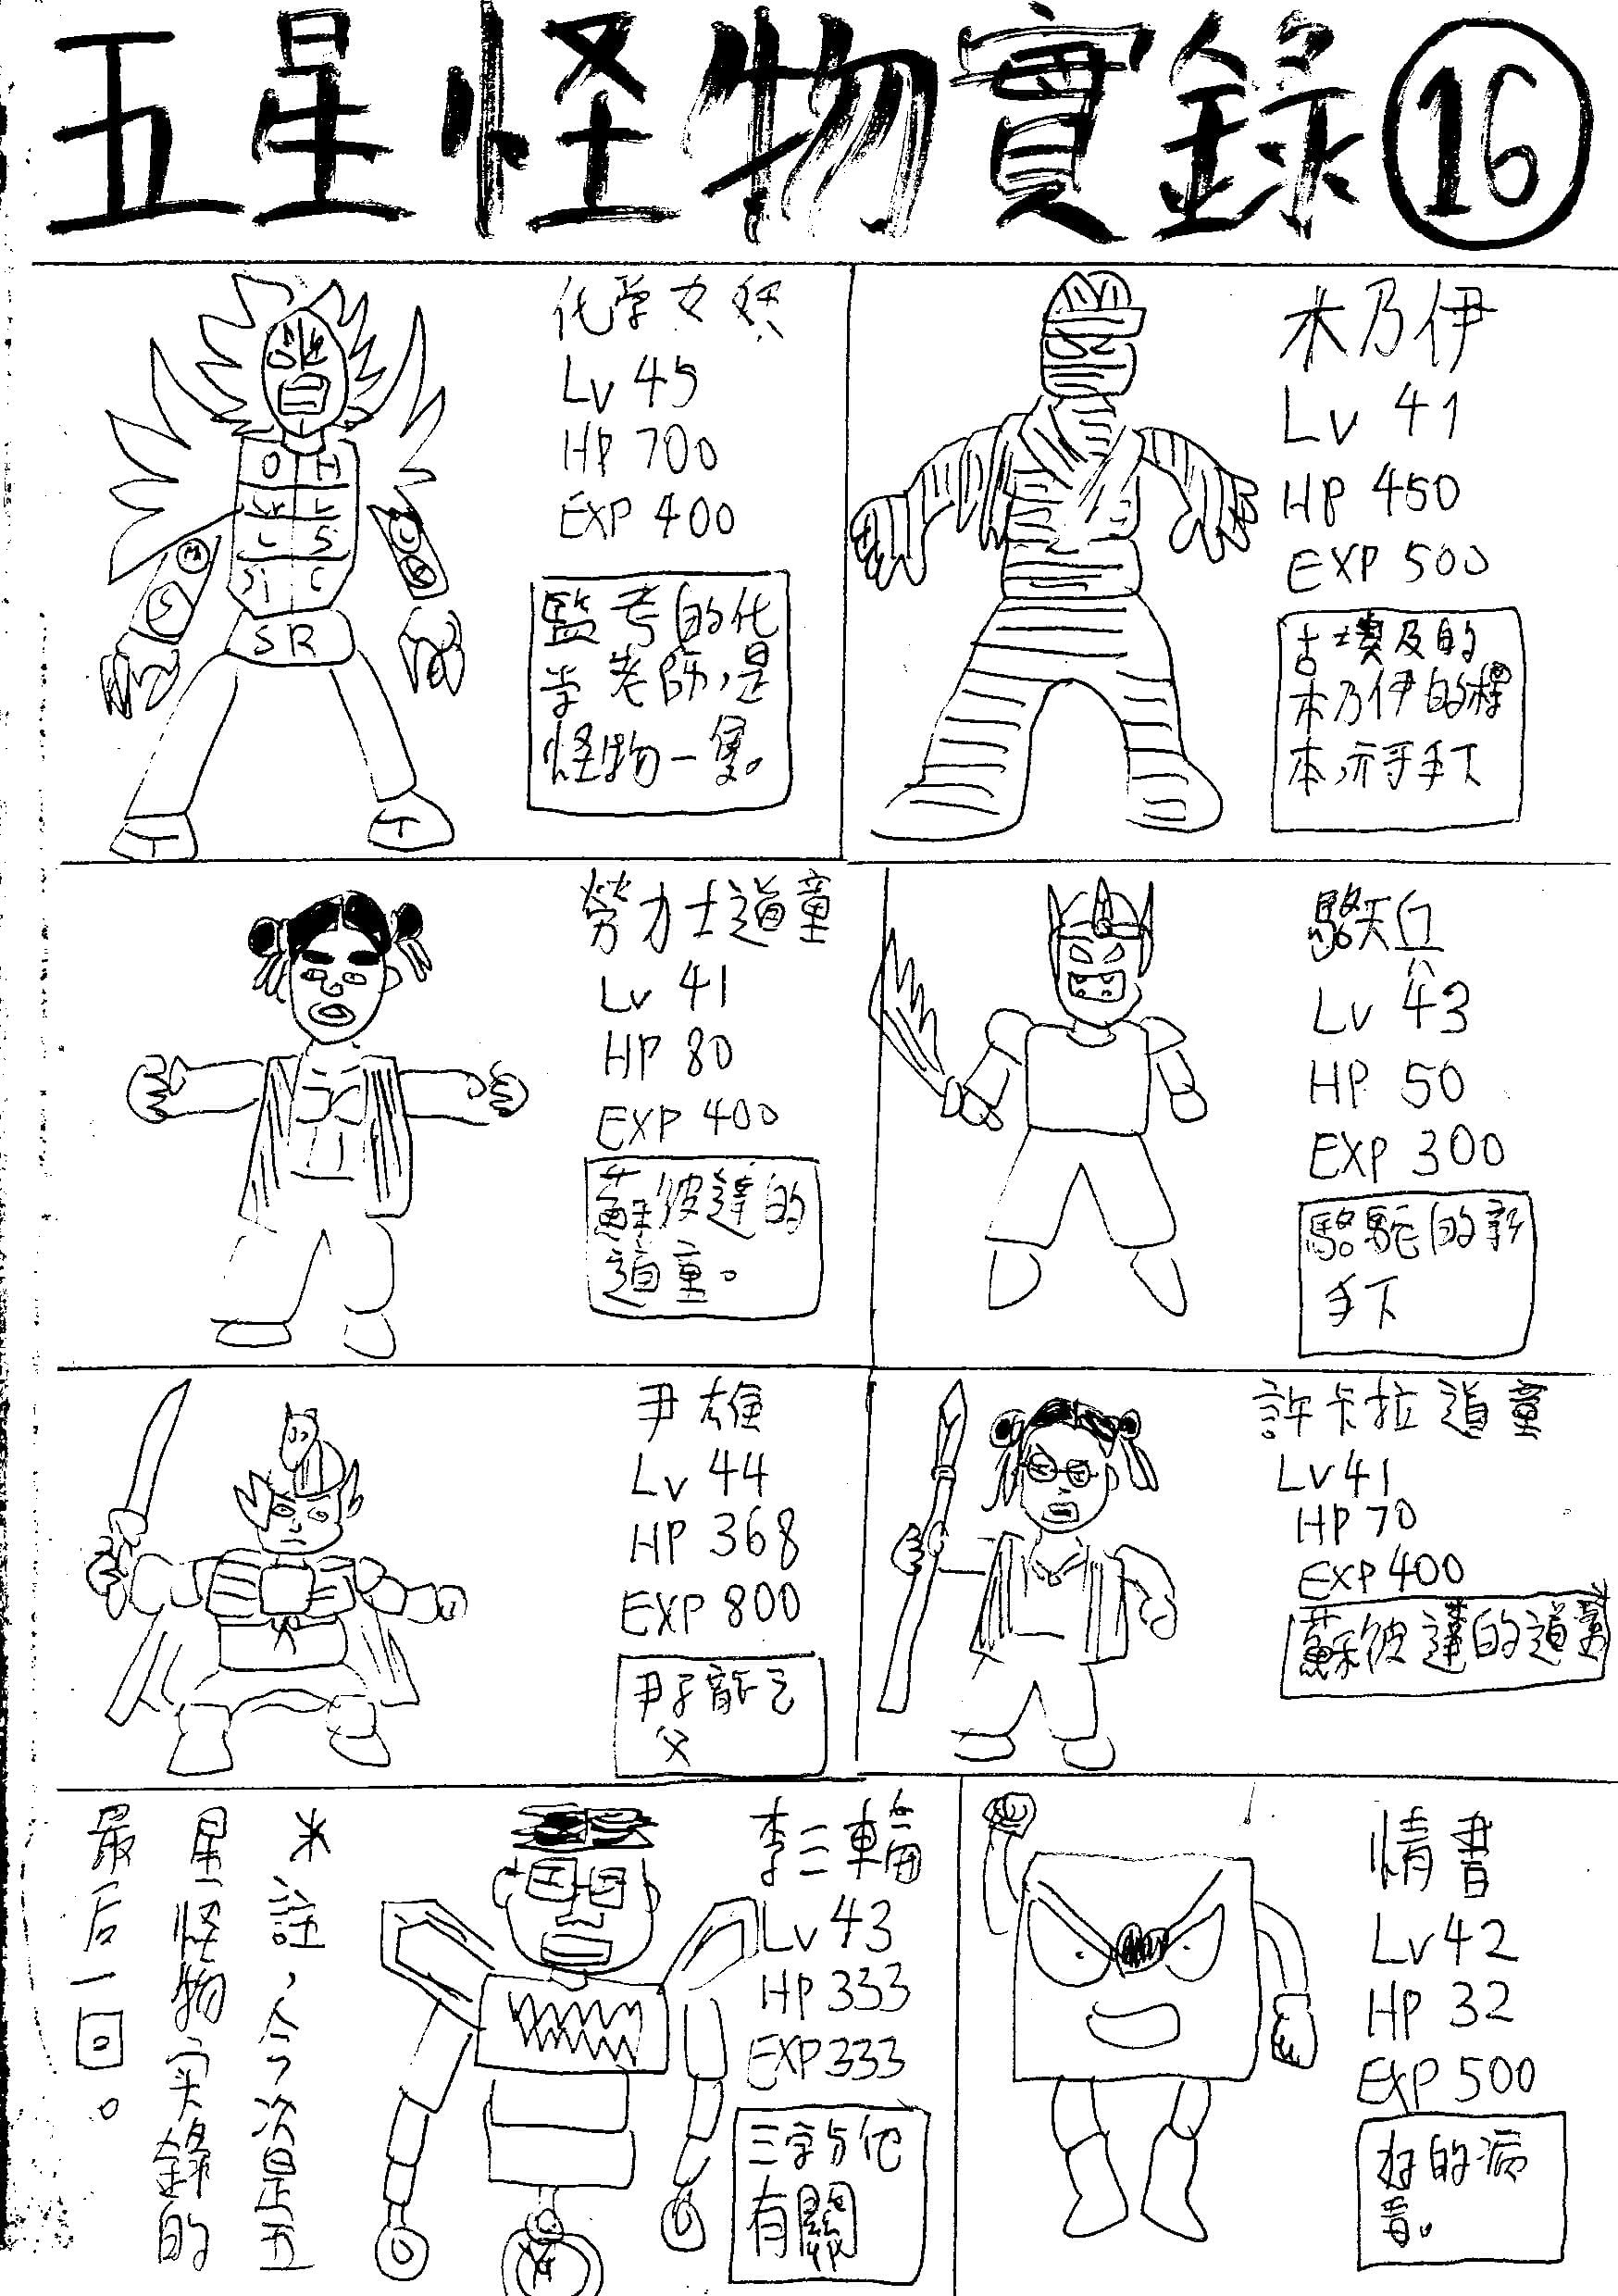 五星怪物實錄⑯
化学力
Lv 45
HP 700
EXP 400
監考的化
学老師,是
怪物一隻。
O H
L S
Si C
SR
M
S
T T
木乃伊
Lv 41
HP 450
EXP 500
古埃及的
木乃伊的標
本,亦手下
勞力士道童
Lv 41
HP 80
EXP 400
蘇彼達的
道童。
駱天兵
Lv 43
HP 50
EXP 300
駱駝的新
手下
尹雄
Lv 44
HP 368
EXP 800
尹子龍之
父
許卡拉道童
Lv 41
HP 70
EXP 400
蘇彼達的道童
※註,今次是五
星怪物实錄的
最后一回。
李三輪
Lv 43
HP 333
EXP 333
三字与他
有關
情書
Lv 42
HP 32
EXP 500
的病
毒。